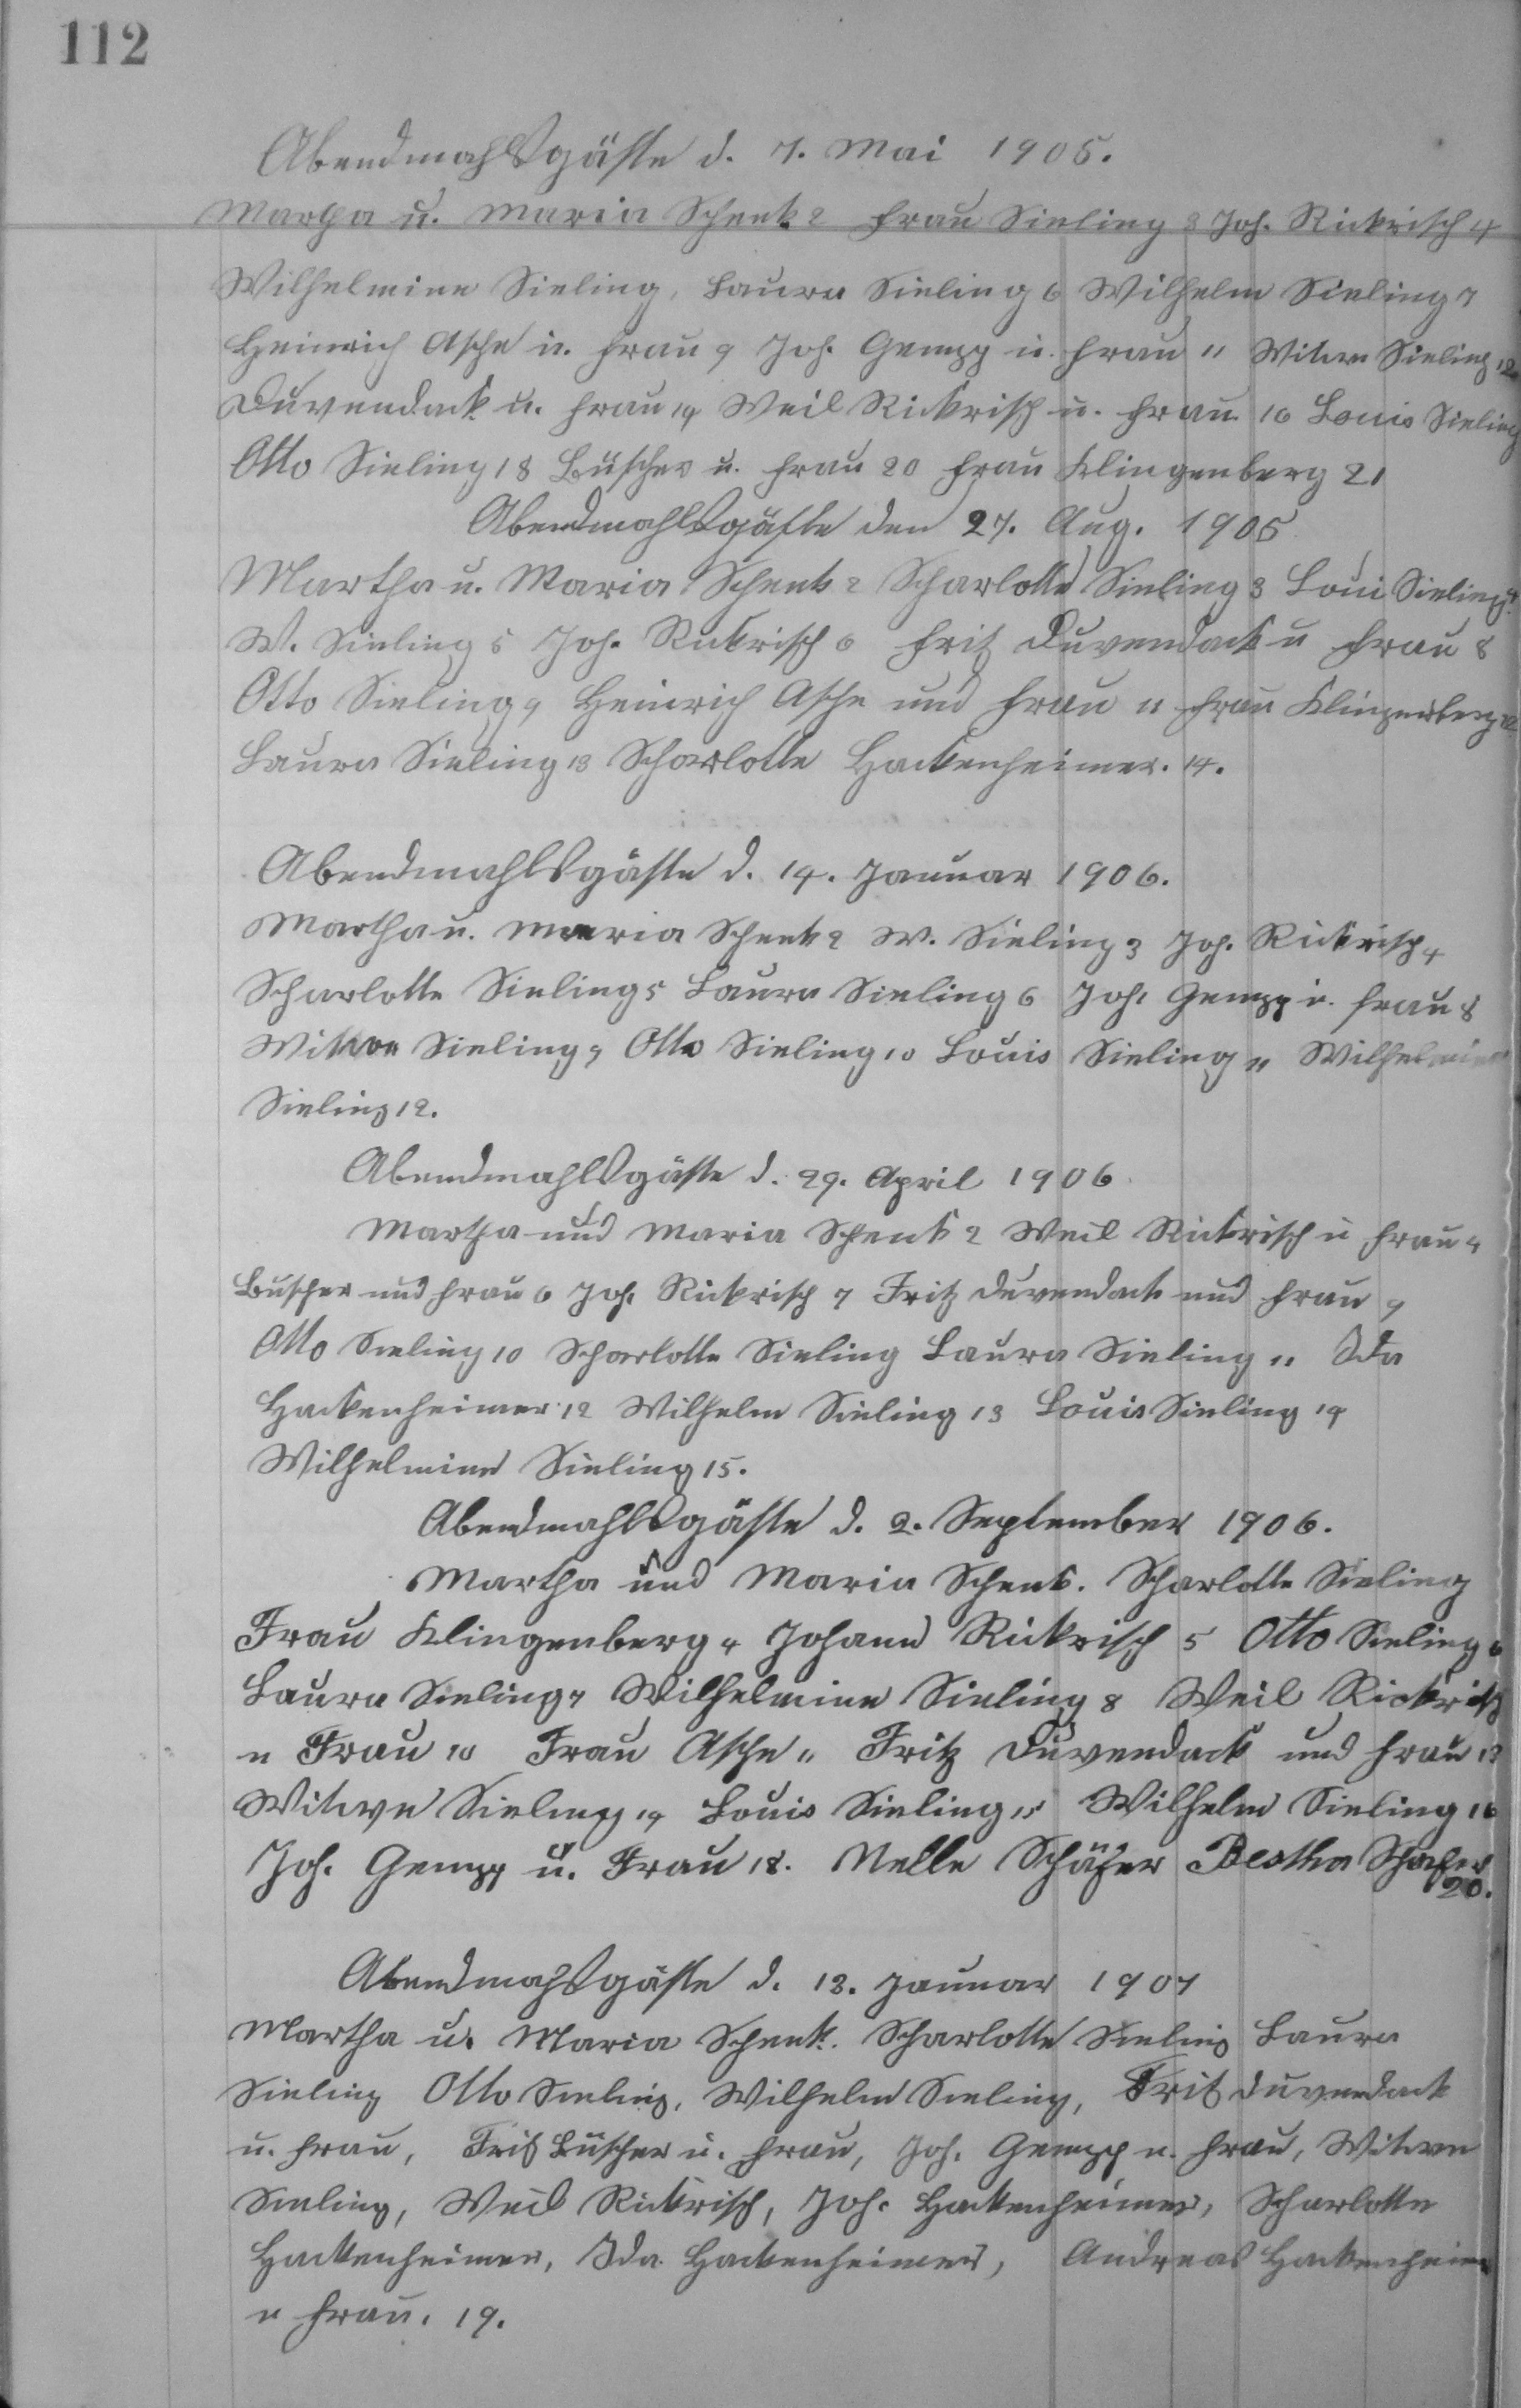 112
Abendmahlsgäste d. 7. Mai 1905.
Martha u. Maria Schenk 2 Frau Sieling 3 Joh. Rickrisch 4
Wilhelmine Sieling, Laura Sieling 6 Wilhelm Sieling 7
Heinrich Asche u. Frau 9 Joh. Gempp u. Frau 11 Witwe Sieling 12
Duvendack u. Frau 14 Weil Rickrisch u. Frau 16 Louis Sieling
Otto Sieling 18 Büscher u. Frau 20 Frau Klingenberg 21
Abendmahlsgäste den 27. Aug. 1905
Martha u. Maria Schenk 2 Scharlotte Sieling 3 Loui Sieling 4
W. Sieling 5 Joh. Rickrisch 6 Fritz Duvendack u Frau 8
Otto Sieling 9 Heinrich Asche und Frau 11 Frau Klingenberg 12
Laura Sieling 13 Scharlotte Hackenheimer. 14.
Abendmahlsgäste d. 14. Januar 1906.
Martha u. Maria Schenk 2 W. Sieling 3 Joh. Rickrisch 4
Scharlotte Sieling 5 Laura Sieling 6 Joh. Gempp u. Frau 8
Witwe Sieling 9 Otto Sieling 10 Louis Sieling 11 Wilhelmine
Sieling 12.
Abendmahlsgäste d. 29. April 1906
Martha und Maria Schenk 2 Weil Rickrisch u Frau 4
Buscher und Frau 6 Joh. Rickrisch 7 Fritz Duvendack und Frau 9
Otto Sieling 10 Scharlotte Sieling Laura Sieling 11 Ida
Hackenheimer 12 Wilhelm Sieling 13 Louis Sieling 14
Wilhelmine Sieling 15.
Abendmahlsgäste d. 2. September 1906.
Martha und Maria Schenk. Scharlotte Sieling
Frau Klingenberg 4 Johann Rickrisch 5 Otto Sieling 6
Laura Sieling 7 Wilhelmine Sieling 8 Weil Rickrisch
u Frau 10 Frau Asche 11 Fritz Duvendack und Frau 13
Witwe Sieling 14 Louis Sieling 15 Wilhelm Sieling 16
Joh. Gempp u. Frau 18. Nelle Schäfer Bertha Schafer
20.
Abendmahlsgäste d. 13. Januar 1907
Martha u. Maria Schenk. Scharlotte Sieling Laura
Sieling Otto Sieling, Wilhelm Sieling, Fritz Duvendack
u. Frau, Fritz Büscher u. Frau, Joh. Gempp u. Frau, Witwe
Sieling, Weil Rickrisch, Joh. Hackenheimer, Scharlotte
Hackenheimer, Ida Hackenheimer, Andreas Hackenheimer
u Frau. 19.